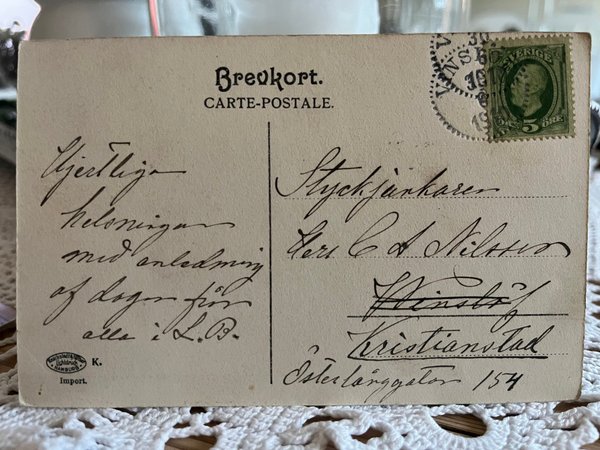 Brevkort.
CARTE-POSTALE.
SVERIGE
5 ÖRE
Hjertliga
helsningar
med anledning
af dagen från
alla i L. B.
Styckjunkaren
Herr C A Nilsson
Winslöf
Kristianstad
Österlånggatan 154
HAMBURG
K.
Import.